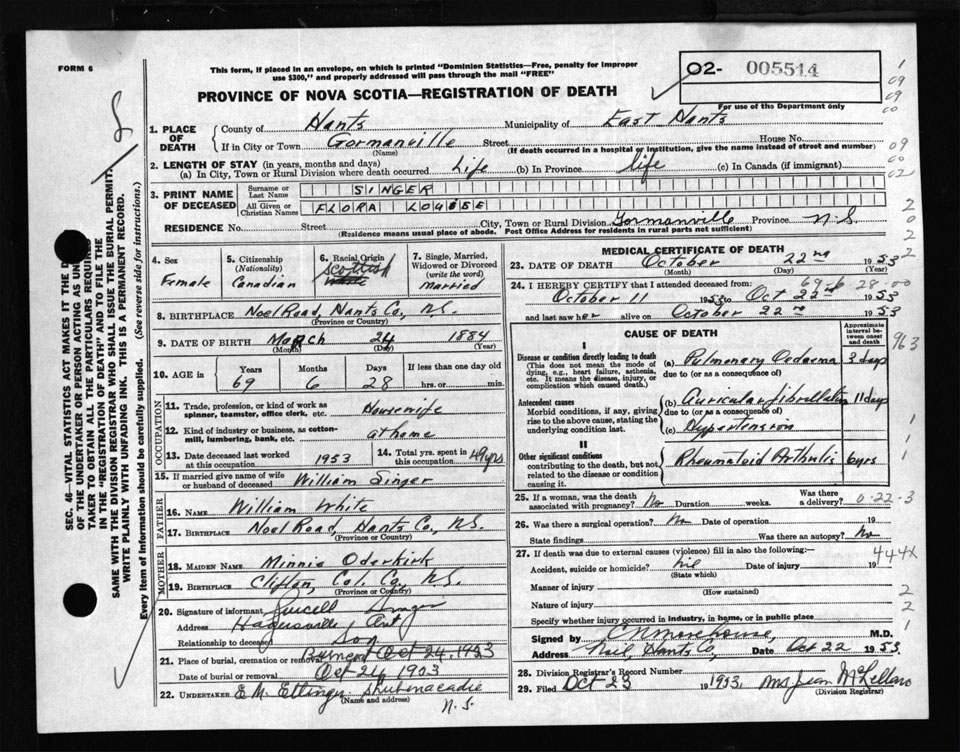 FORM 6
This form, if placed in an envelope, on which is printed "Dominion Statistics—Free, penalty for improper
use $300," and properly addressed will pass through the mail "FREE"
O2- 005514
For use of the Department only
PROVINCE OF NOVA SCOTIA—REGISTRATION OF DEATH
1. PLACE OF DEATH
County of Hants Municipality of East Hants
If in City or Town Gormanville Street House No.
(Name) (If death occurred in a hospital or institution, give the name instead of street and number)
2. LENGTH OF STAY (in years, months and days)
(a) In City, Town or Rural Division where death occurred Life (b) In Province life (c) In Canada (if immigrant)
3. PRINT NAME OF DECEASED
Surname or Last Name SINGER
All Given or Christian Names FLORA LOUISE
RESIDENCE No. Street City, Town or Rural Division Gormanville Province N.S.
(Residence means usual place of abode. Post Office Address for residents in rural parts not sufficient)
4. Sex Female
5. Citizenship (Nationality) Canadian
6. Racial Origin Scottish
7. Single, Married, Widowed or Divorced (write the word) Married
8. BIRTHPLACE Noel Road, Hants Co., N.S.
(Province or Country)
9. DATE OF BIRTH March 24 1884
(Month) (Day) (Year)
10. AGE in Years 69 Months 6 Days 28 If less than one day old hrs. or min.
OCCUPATION
11. Trade, profession, or kind of work as spinner, teamster, office clerk, etc. Housewife
12. Kind of industry or business, as cotton-mill, lumbering, bank, etc. at home
13. Date deceased last worked at this occupation 1953
14. Total yrs. spent in this occupation 49 yrs
15. If married give name of wife or husband of deceased William Singer
FATHER
16. NAME William White
17. BIRTHPLACE Noel Road, Hants Co., N.S.
(Province or Country)
MOTHER
18. MAIDEN NAME Minnie Oderkirk
19. BIRTHPLACE Clifton, Col. Co., N.S.
(Province or Country)
20. Signature of informant Singer
Address Hagersville Ont
Relationship to deceased Son
21. Place of burial, cremation or removal Oct 24, 1953
Date of burial or removal Oct 24 1953
22. UNDERTAKER E. M. Ettinger Shubenacadie
(Name and address)
N.S.
MEDICAL CERTIFICATE OF DEATH
23. DATE OF DEATH October 22nd 1953
(Month) (Day) (Year)
69-6 28-00
24. I HEREBY CERTIFY that I attended deceased from:
October 11 1953 to Oct 22nd 1953
and last saw her alive on October 22nd 1953
CAUSE OF DEATH
Approximate interval between onset and death
I
Disease or condition directly leading to death
(This does not mean the mode of dying, e.g., heart failure, asthenia, etc. It means the disease, injury, or complication which caused death.
(a) Pulmonary Oedema 3 days
due to (or as a consequence of)
Antecedent causes
Morbid conditions, if any, giving rise to the above cause, stating the underlying condition last.
(b) Auricular fibrillation 11 days
due to (or as a consequence of)
(c) Hypertension
II
Other significant conditions
contributing to the death, but not related to the disease or condition causing it.
Rheumatoid Arthritis 6 yrs
25. If a woman, was the death associated with pregnancy? No Duration weeks. Was there a delivery?
26. Was there a surgical operation? No Date of operation 19
State findings Was there an autopsy? No
27. If death was due to external causes (violence) fill in also the following:
Accident, suicide or homicide? nil Date of injury 19
(State which)
444X
Manner of injury
(How sustained)
Nature of injury
Specify whether injury occurred in industry, in home, or in public place
Signed by M.D.
Address Noel, Hants Co, Date Oct 22 1953
28. Division Registrar's Record Number
29. Filed Oct 23 1953. Mrs Jean McLellan
(Division Registrar)
SEC. 46—VITAL STATISTICS ACT MAKES IT THE
OF THE UNDERTAKER OR PERSON ACTING AS
TAKER TO OBTAIN ALL THE PARTICULARS REQUIRED
IN THE "REGISTRATION OF DEATH" AND TO FILE THE
SAME WITH THE DIVISION REGISTRAR WHO SHALL ISSUE THE BURIAL PERMIT.
WRITE PLAINLY WITH UNFADING INK. THIS IS A PERMANENT RECORD.
Every item of information should be carefully supplied. (See reverse side for instructions.)